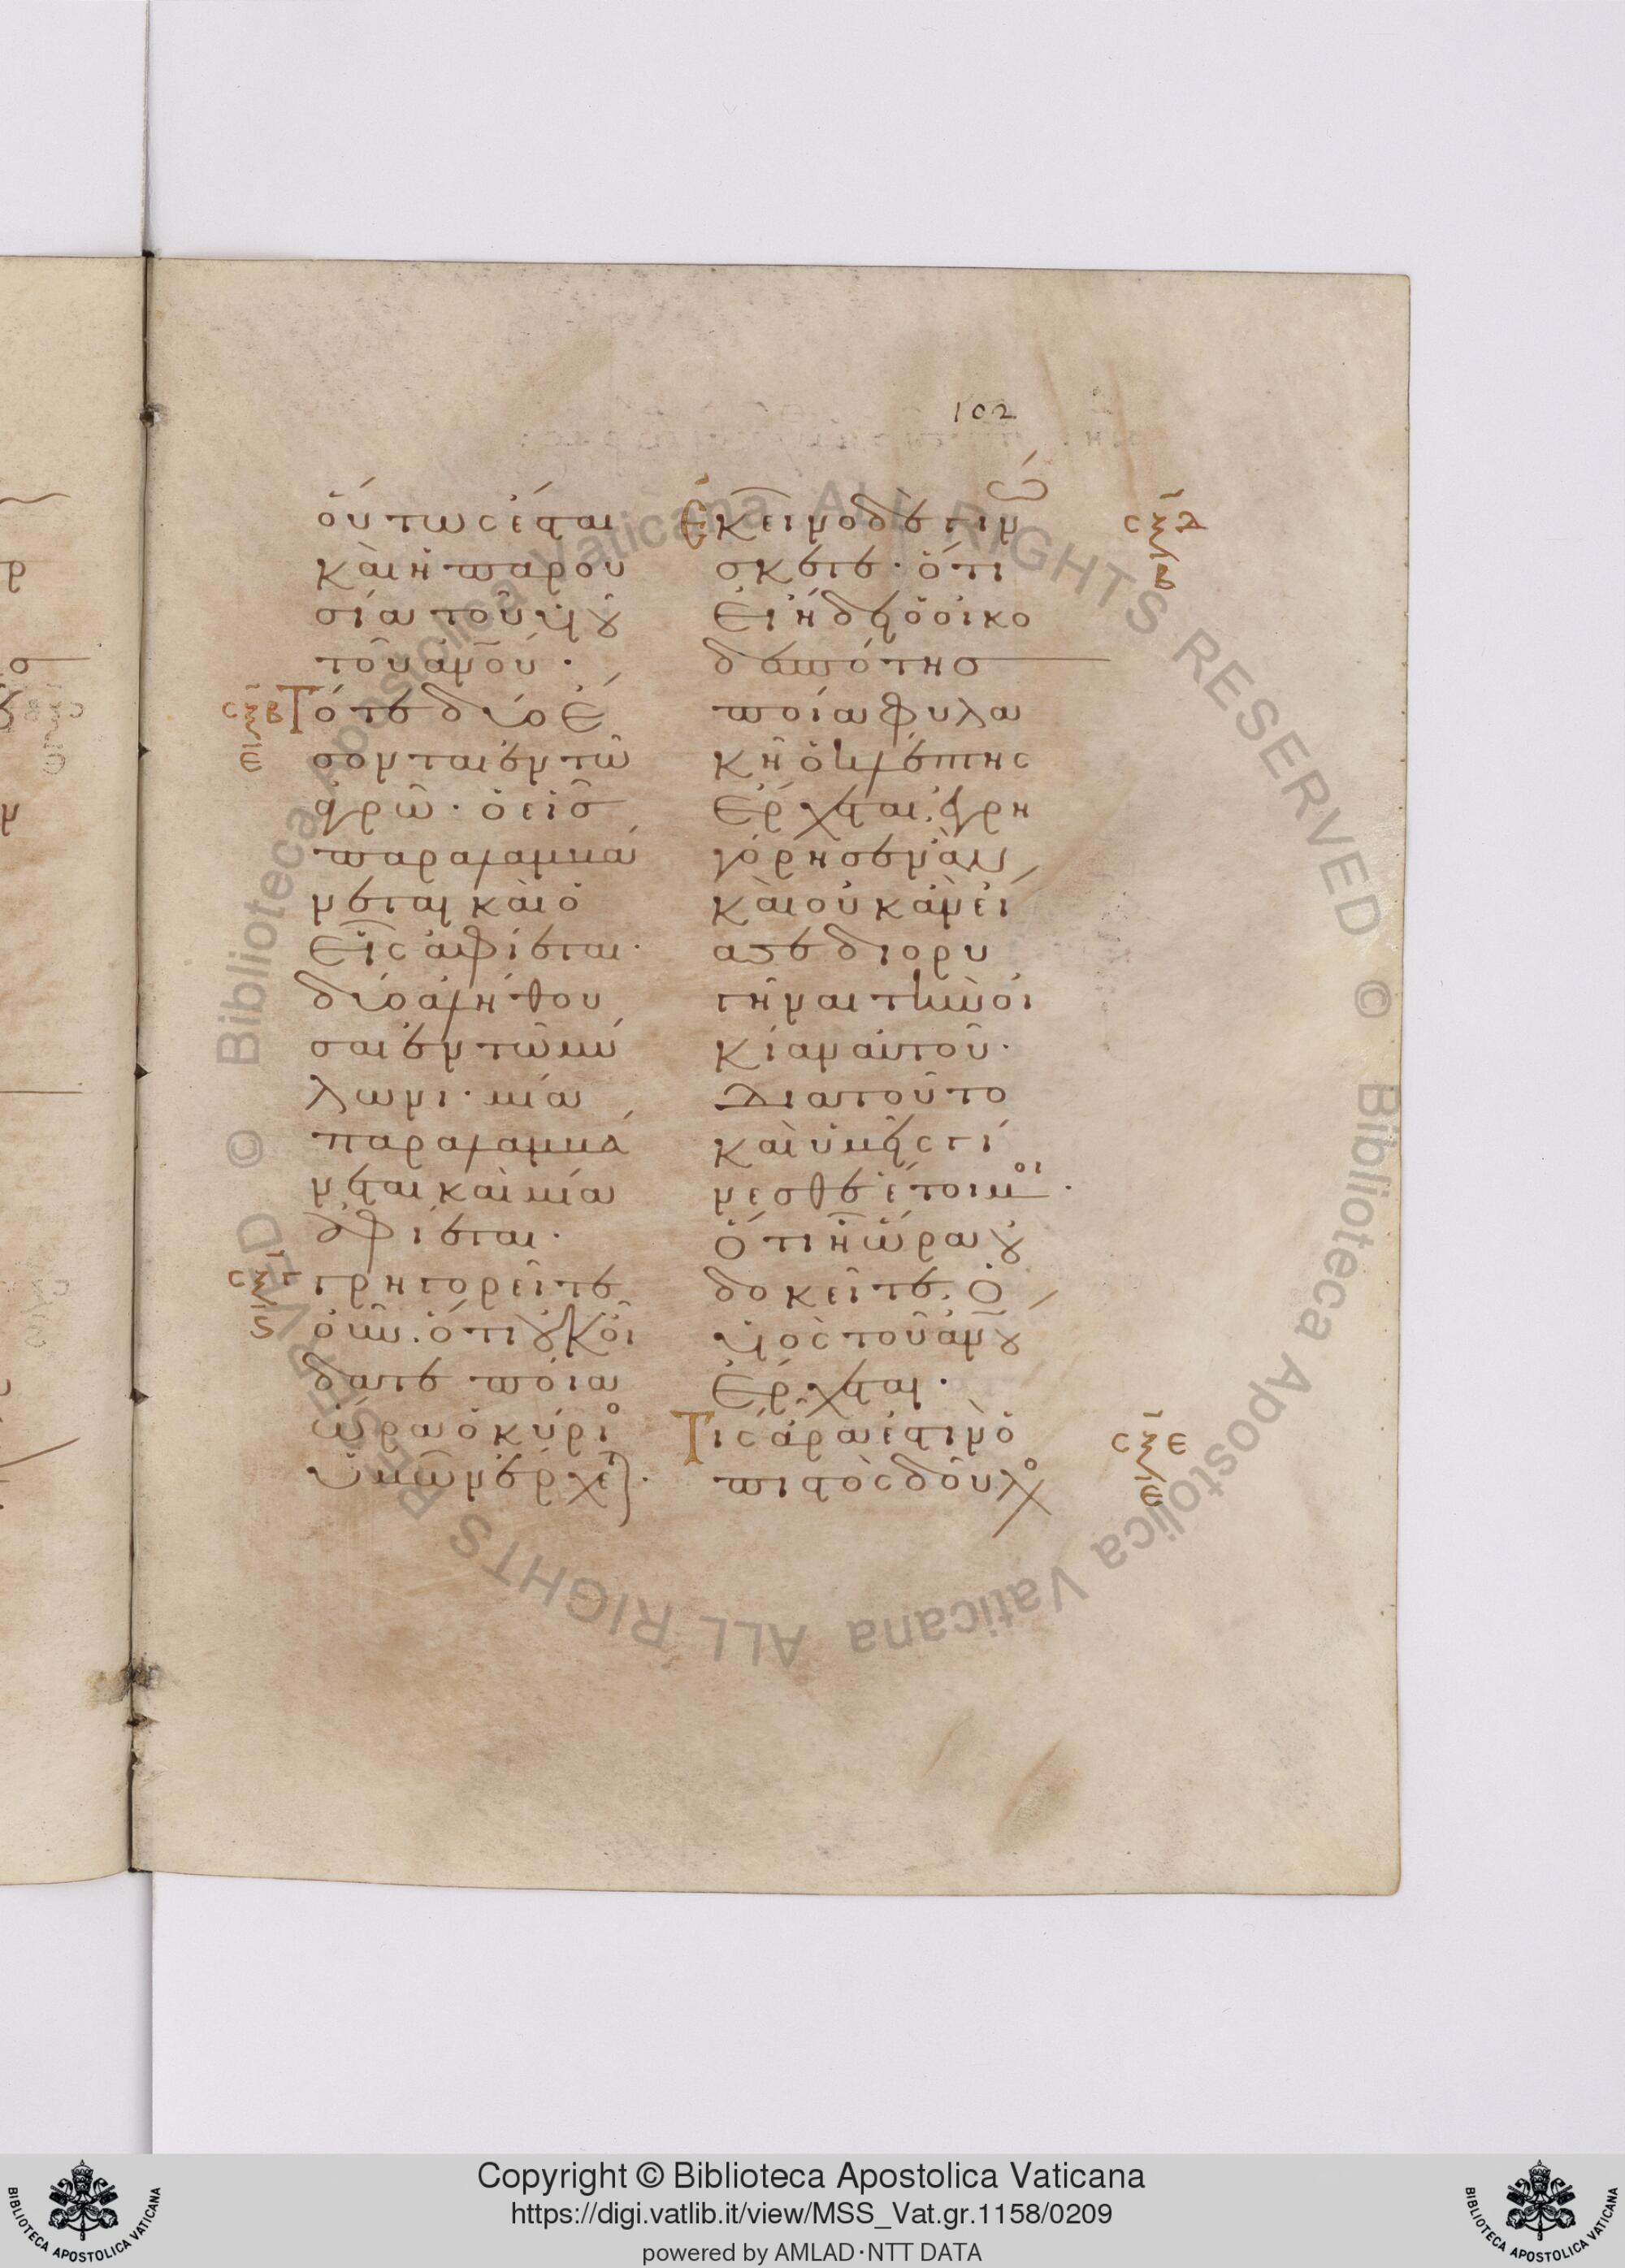 102
οὕτως ἔσται
καὶ ἡ παρου
σία τοῦ υἱοῦ
τοῦ ἀνου·
Τότε δύο ἔ
σονται ἐν τῶ
ἀγρῶ· ὁ εἷσ
παραλαμβά
νεται καὶ ὁ
εἷς ἀφίεται·
δύο ἀλήθου
σαι ἐν τῶ μύ
λωνι· μία
παραλαμβά
νεται καὶ μία
ἀφίεται·
γρηγορεῖτε
οὖν· ὅτι οὐκ οἴ
δατε ποία
ὥρα ὁ κύριο
ὑμῶν ἔρχεται·
Ἐκεῖνο δὲ γινώ
σκετε· ὅτι
εἰ ἤδει ὁ οἰκο
δεσπότησ
ποία φυλα
κῆ ὁ κλέπτης
ἔρχεται, ἐγρη
γόρησεν ἂν
καὶ οὐκ ἂν εἴ
ασε διορυ
γῆναι τὴν οἰ
κίαν αὐτοῦ·
Διατοῦτο
καὶ ὑμεῖς γί
νεσθε ἕτοιμοι·
ὅτι ἡ ὥρα οὐ
δοκεῖτε. ὁ
υἱὸς τοῦ ἀνου
ἔρχεται·
Τίς ἄρα ἐστὶν ὁ
πιστὸς δοῦλο
σξβ
σξγ
ϛ
σξδ
β
σξε
ε
Copyright © Biblioteca Apostolica Vaticana
https://digi.vatlib.it/view/MSS_Vat.gr.1158/0209
powered by AMLAD·NTT DATA
BIBLIOTECA APOSTOLICA VATICANA
BIBLIOTECA APOSTOLICA VATICANA
© Biblioteca Apostolica Vaticana ALL RIGHTS RESERVED © Biblioteca Apostolica Vaticana ALL RIGHTS RESERVED